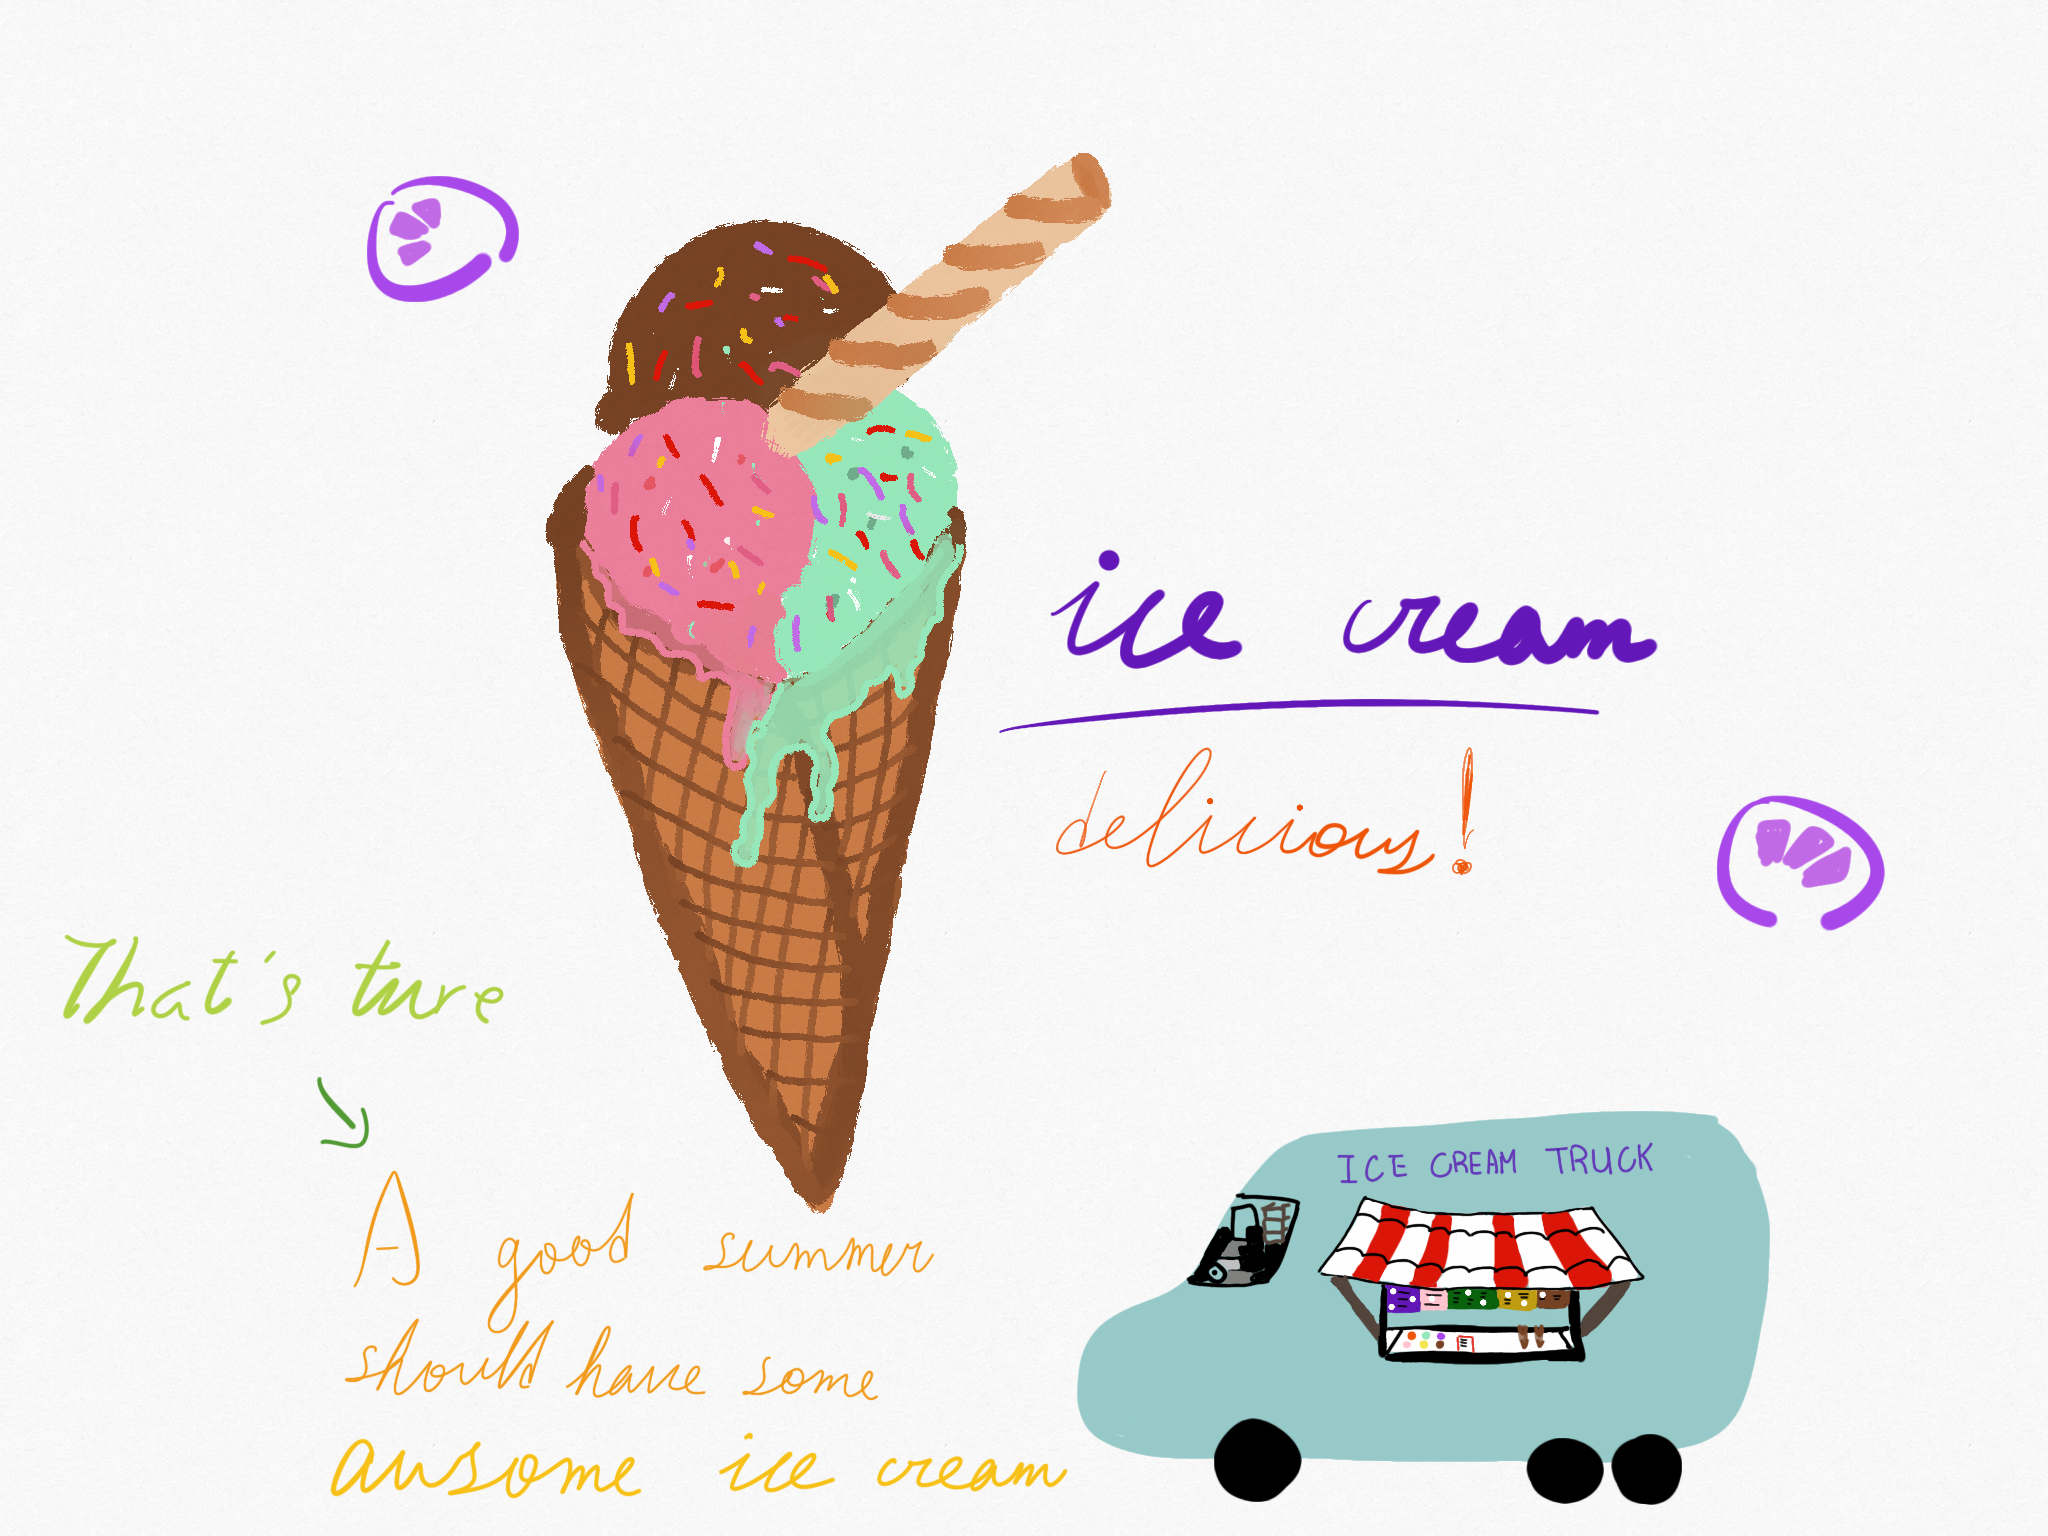 ice cream
delicious!
That's ture
A good summer
should have some
awsome ice cream
ICE CREAM TRUCK